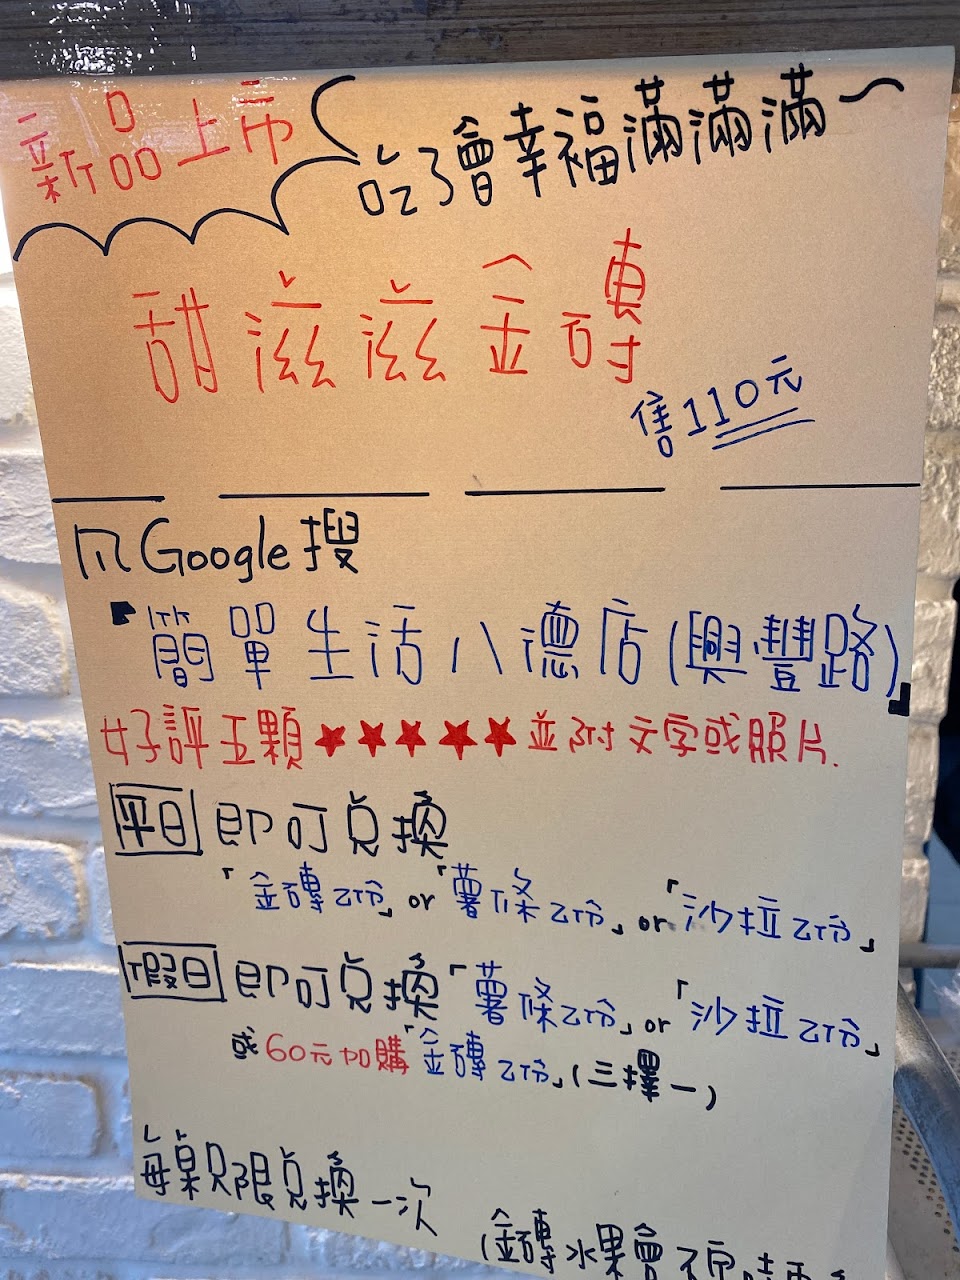 新品上市
吃了會幸福滿滿滿~
甜滋滋金磚
售110元
Google搜
『簡單生活八德店(興豐路)』
好評五顆★★★★★並附文字或照片.
平日 即可兌換
「金磚乙份」or「薯條乙份」or「沙拉乙份」
假日 即可兌換「薯條乙份」or「沙拉乙份」
或60元加購「金磚乙份」(三擇一)
每桌只限兌換一次
(金磚水果會不定時